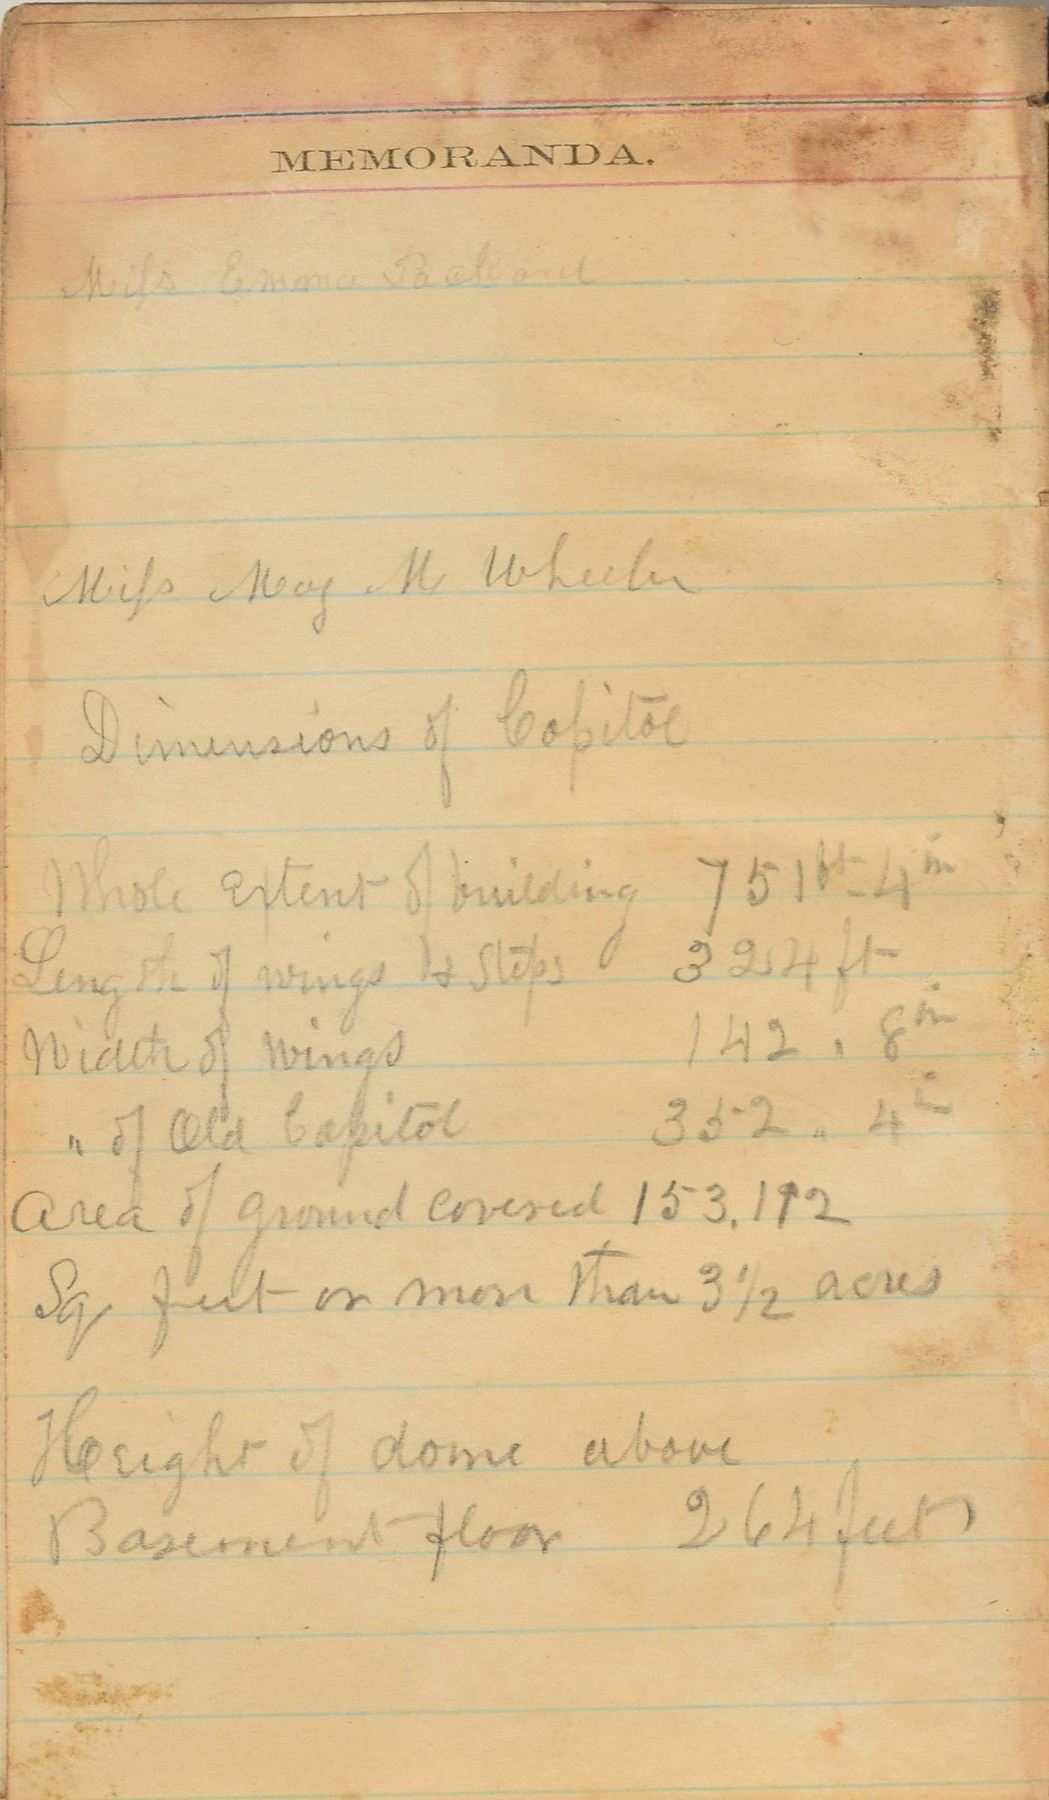 MEMORANDA.
Miss Emma Packard
Miss May M Wheeler
Dimensions of Capitol
Whole Extent of building 751ft-4in
Length of wings & Steps 324 ft
Width of wings 142 . 8in
" of Old Capitol 352 " 4in
Area of ground covered 153,112
Sq feet or more than 3 1/2 acres
Height of dome above
Basement floor 264 feet